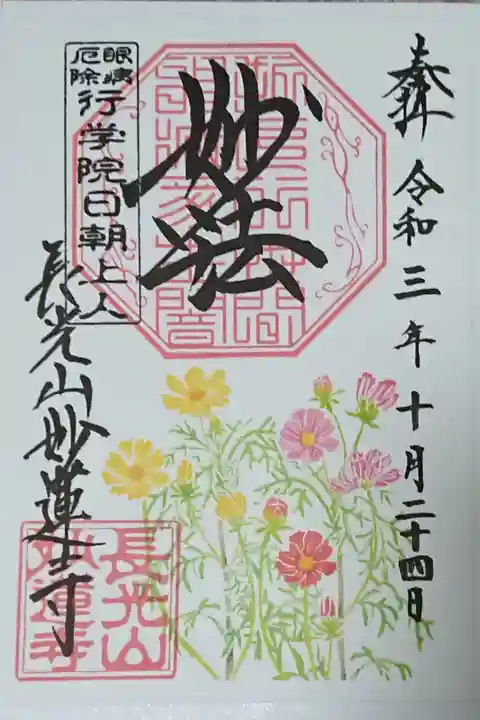 奉拝
令和三年十月二十四日
妙法
眼病
厄除
行学院日朝上人
長光山妙蓮寺
長光山
妙蓮寺